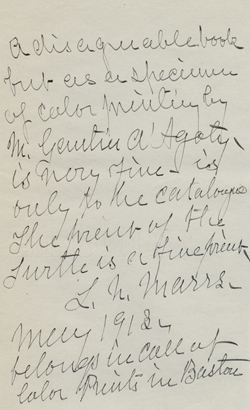 A disagreeable book
but as a specimen
of color printing by
M. Gautier d'Agoty,
is very fine - is
only to the catalogue
The print of the
Turtle is a fine print
L. N. Marrs
May 1913
belongs in call of
Color Prints in Boston